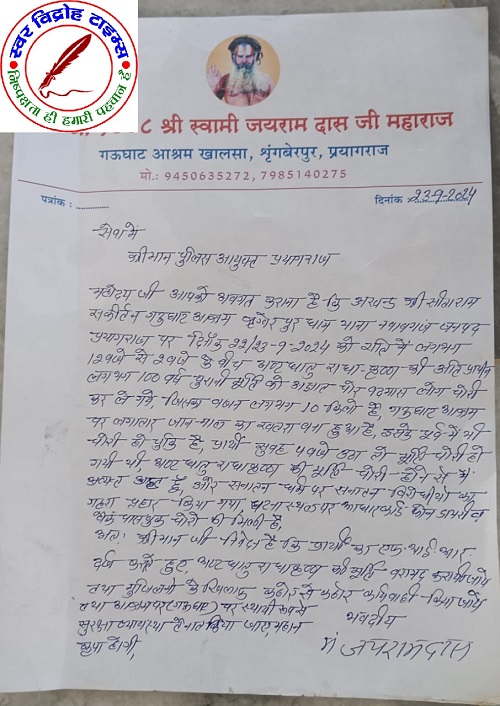 स्वर विद्रोह टाइम्स
निष्पक्षता ही हमारी पहचान है
८ श्री स्वामी जयराम दास जी महाराज
गऊघाट आश्रम खालसा, श्रृंगबेरपुर, प्रयागराज
मो.: 9450635272, 7985140275
पत्रांक : ............
दिनांक 23-9-2024
सेवा में
श्रीमान पुलिस आयुक्त प्रयागराज
महोदय जी आपको अवगत कराना है कि अखण्ड श्री सीताराम
संकीर्तन गऊघाट आश्रम श्रृंग्वेरपुर धाम थाना नवाबगंज जनपद
प्रयागराज पर दिनाँक 22/23-9-2024 की रात्रि में लगभग
12 बजे से 2 बजे के बीच अष्ट धातु राधा-कृष्ण की अति प्राचीन
लगभग 100 वर्ष पुरानी मूर्ति को अज्ञात चोर बदमाश लोग चोरी
कर ले गये, जिसका वजन लगभग 10 किलो है, गऊघाट आश्रम
पर लगातार जान-माल का खतरा बना हुआ है, इसके पूर्व में भी
चोरी हो चुकी है, प्रार्थी सुबह 4 बजे उठा तो मूर्ति चोरी हो
गयी थी, अष्ट धातु राधा कृष्ण की मूर्ति चोरी होने से मैं
अत्यंत आहत हूँ, और सनातन धर्म पर सनातन विरोधीयों का
गहरा प्रहार किया गया, घटना स्थल पर आधार कार्ड
चोरों की मिली है,
अतः श्रीमान जी निवेदन है कि प्रार्थी का एफ आई आर
दर्ज करते हुए, अष्ट धातु राधा कृष्ण की मूर्ति बरामद करायी जाये
तथा मुल्जिमों के खिलाफ कठोर से कठोर कार्यवाही किया जाये
तथा आश्रम पर (गऊघाट) पर स्थायी रूप से
सुरक्षा व्यवस्था तैनात किया जाए, महान
कृपा होगी,
भवदीय
मं जयराम दास